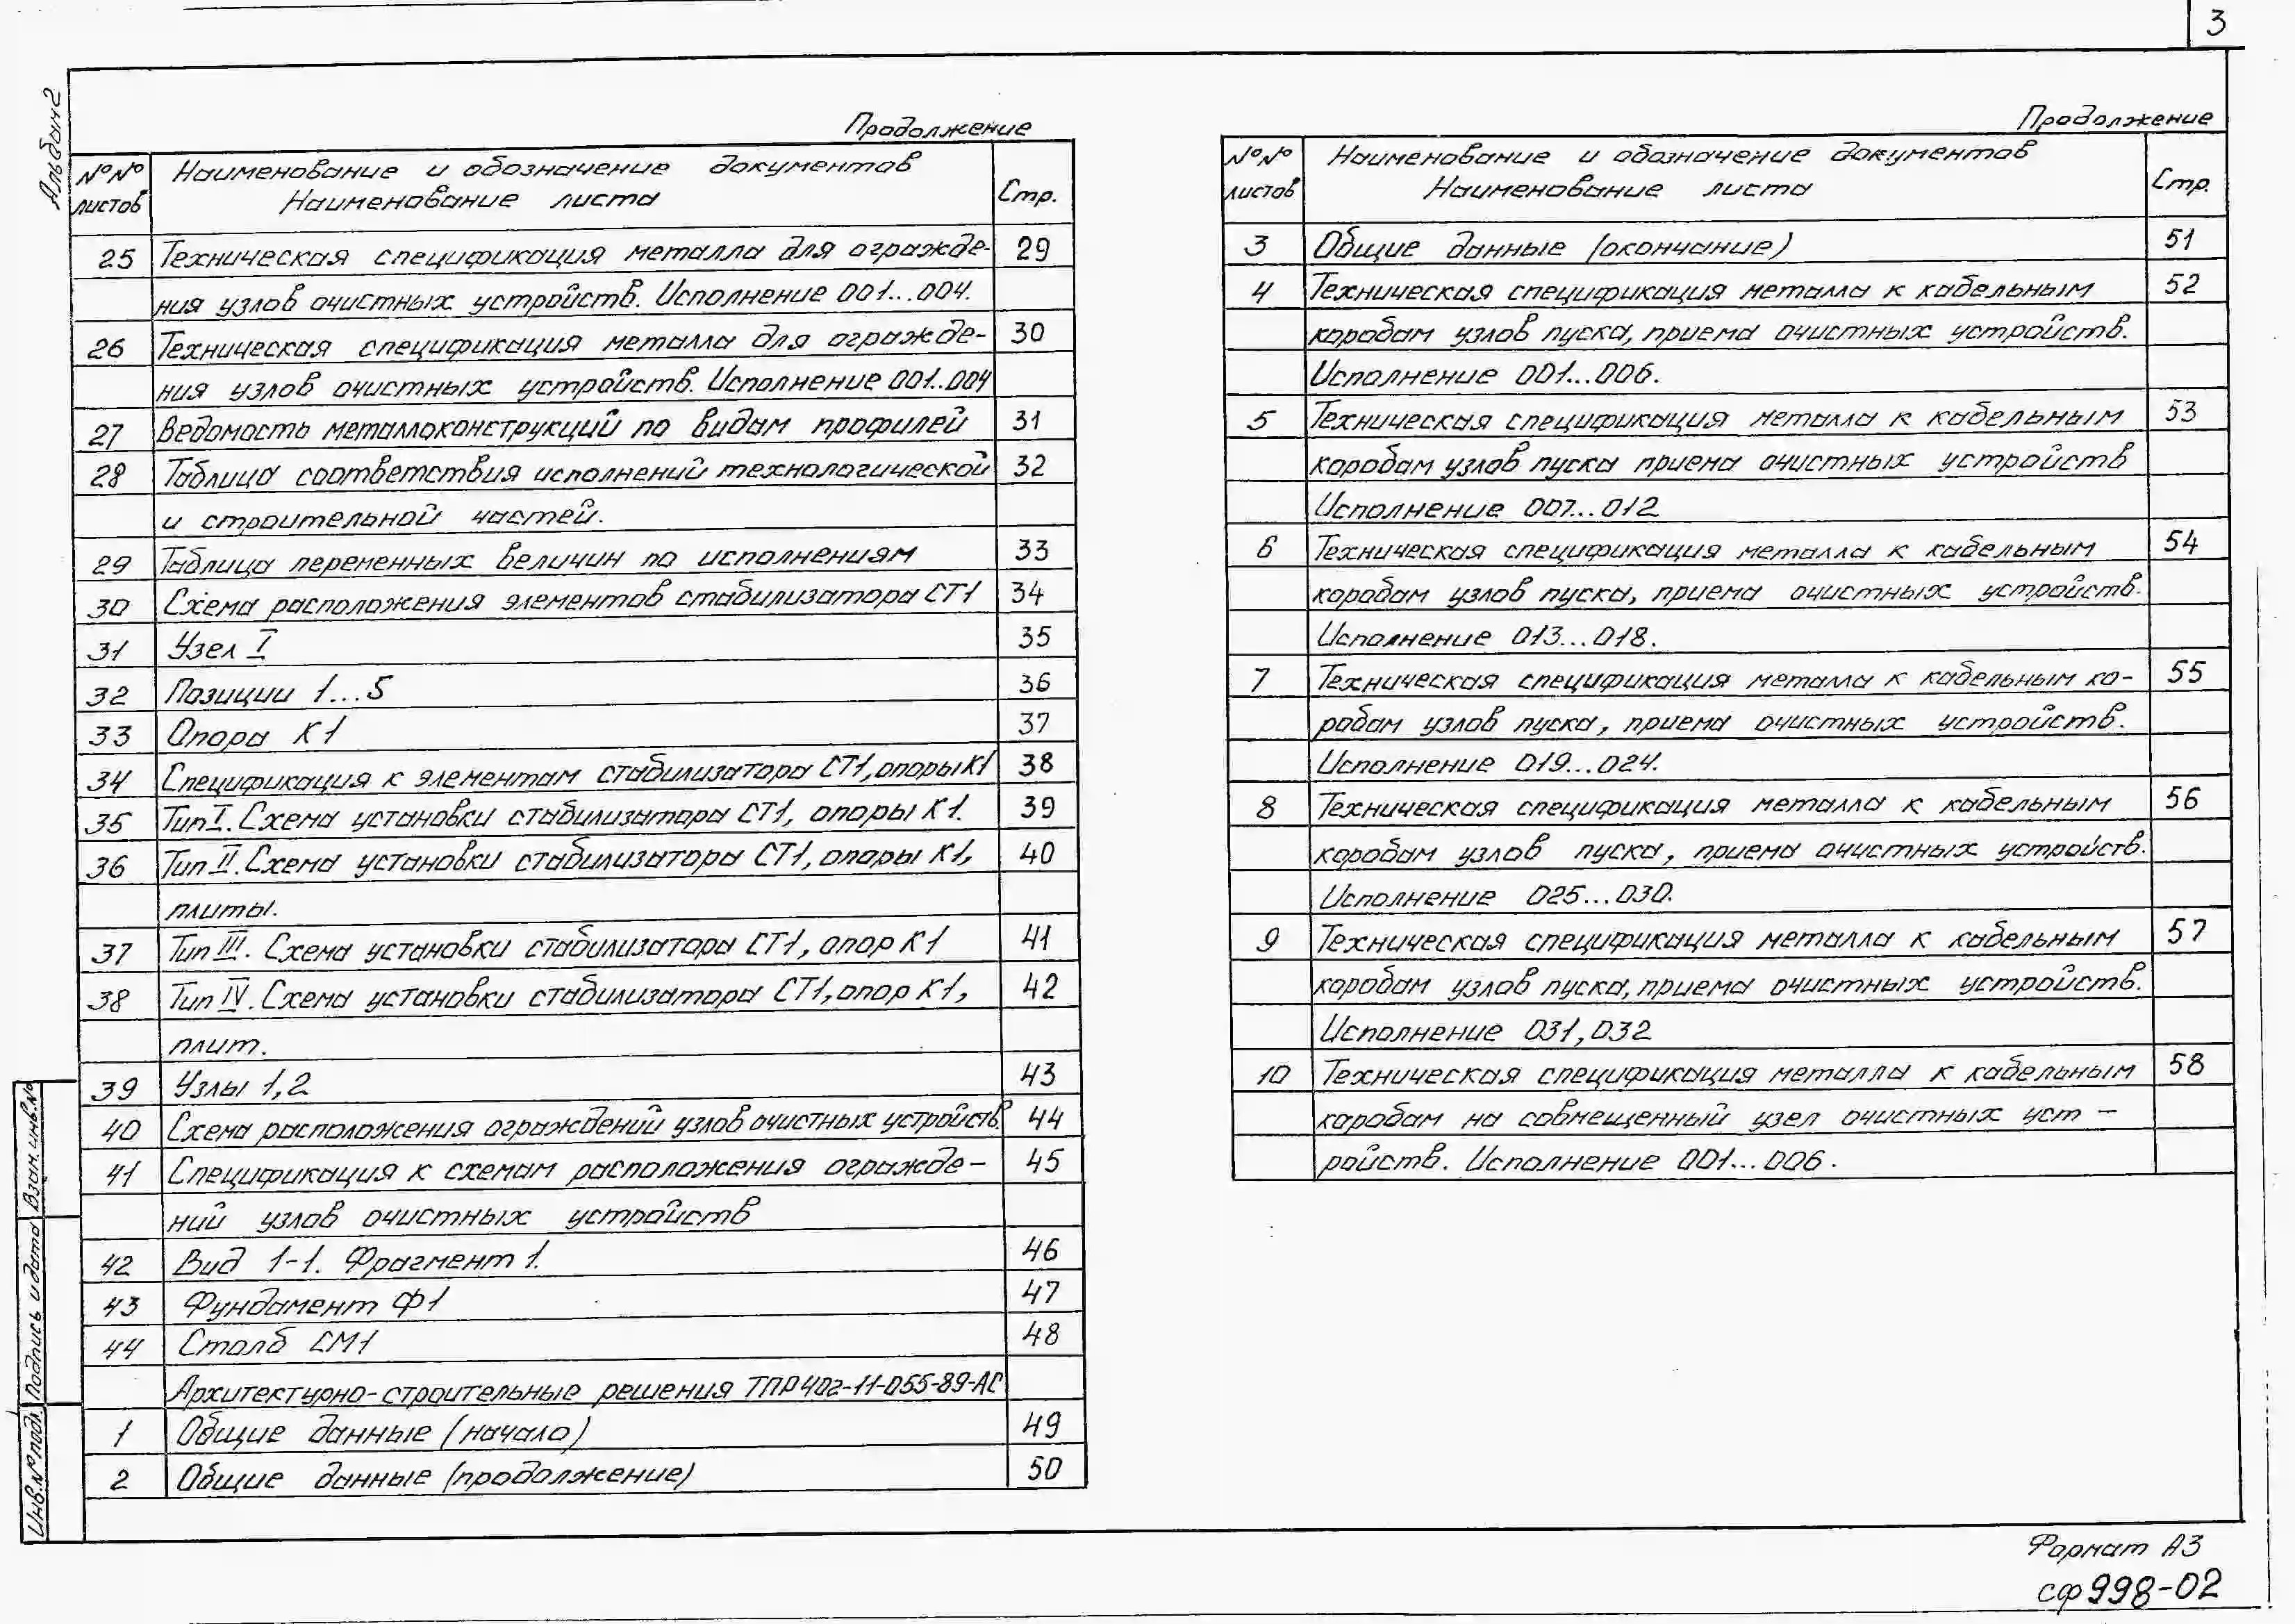 3
Альбом 2
Продолжение
№№ листов
Наименование и обозначение документов
Наименование листа
Стр.
25 Техническая спецификация металла для огражде- 29
ния узлов очистных устройств. Исполнение 001...004.
26 Техническая спецификация металла для огражде- 30
ния узлов очистных устройств. Исполнение 001..004
27 Ведомость металлоконструкций по видам профилей 31
28 Таблица соответствия исполнений технологической 32
и строительной частей.
29 Таблица переменных величин по исполнениям 33
30 Схема расположения элементов стабилизатора СТ1 34
31 Узел I 35
32 Позиции 1...5 36
33 Опора К1 37
34 Спецификация к элементам стабилизатора СТ1, опоры К1 38
35 Тип I. Схема установки стабилизатора СТ1, опоры К1. 39
36 Тип II. Схема установки стабилизатора СТ1, опоры К1, 40
плиты.
37 Тип III. Схема установки стабилизатора СТ1, опор К1 41
38 Тип IV. Схема установки стабилизатора СТ1, опор К1, 42
плит.
39 Узлы 1,2 43
40 Схема расположения ограждений узлов очистных устройств. 44
41 Спецификация к схемам расположения огражде- 45
ний узлов очистных устройств
42 Вид 1-1. Фрагмент 1. 46
43 Фундамент Ф1 47
44 Столб СМ1 48
Архитектурно-строительные решения ТПР 402-11-055-89-АС
1 Общие данные (начало) 49
2 Общие данные (продолжение) 50
Продолжение
№№ листов
Наименование и обозначение документов
Наименование листа
Стр.
3 Общие данные (окончание) 51
4 Техническая спецификация металла к кабельным 52
коробам узлов пуска, приема очистных устройств.
Исполнение 001...006.
5 Техническая спецификация металла к кабельным 53
коробам узлов пуска приема очистных устройств
Исполнение 007...012
6 Техническая спецификация металла к кабельным 54
коробам узлов пуска, приема очистных устройств.
Исполнение 013...018.
7 Техническая спецификация металла к кабельным ко- 55
робам узлов пуска, приема очистных устройств.
Исполнение 019...024.
8 Техническая спецификация металла к кабельным 56
коробам узлов пуска, приема очистных устройств.
Исполнение 025...030.
9 Техническая спецификация металла к кабельным 57
коробам узлов пуска, приема очистных устройств.
Исполнение 031,032
10 Техническая спецификация металла к кабельным 58
коробам на совмещенный узел очистных уст-
ройств. Исполнение 001...006.
Взам. инв. №
Подпись и дата
Инв. № подл.
Формат А3
сф 998-02